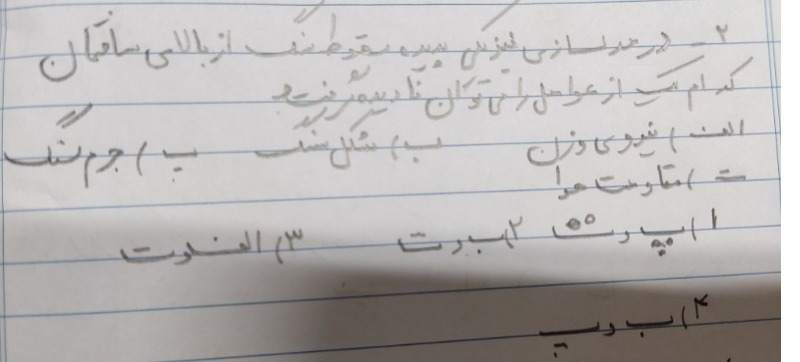 ۲- در مدلسازی فیزیکی پدیده سقوط سنگ از بالای ساختمان
کدام یک از عوامل را نمی توان نادیده گرفت
الف) نیروی وزن ب) شکل سنگ پ) جرم سنگ
ت) مقاومت هوا
۱) پ و ت ۲) ب و ت ۳) الف و ت
۴) ب و پ